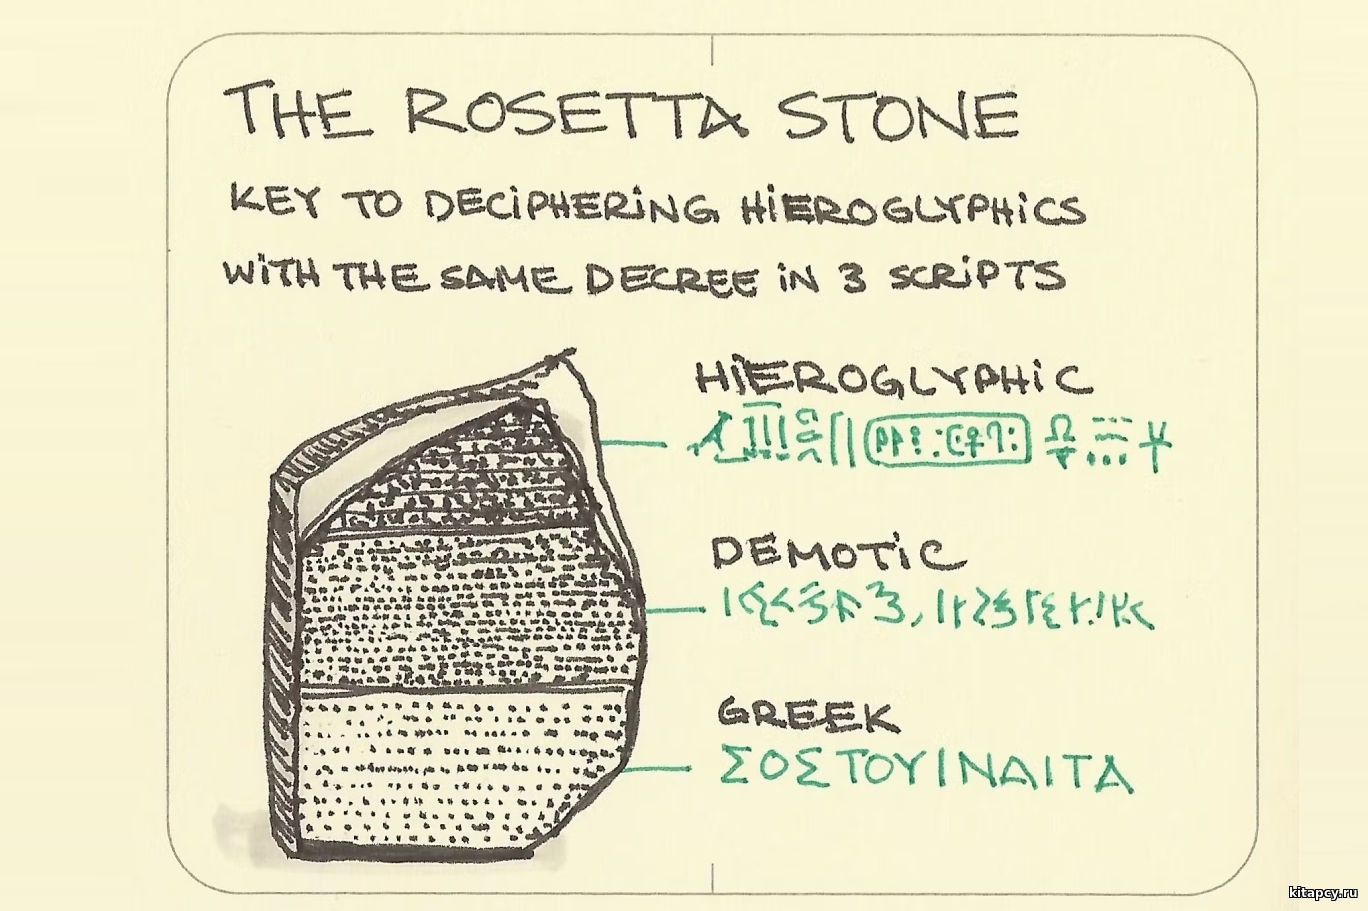 THE ROSETTA STONE
KEY TO DECIPHERING HIEROGLYPHICS
WITH THE SAME DECREE IN 3 SCRIPTS
HIEROGLYPHIC
DEMOTIC
GREEK
ΣΟΣΤΟΥΙΝΑΙΤΑ
kitapcy.ru